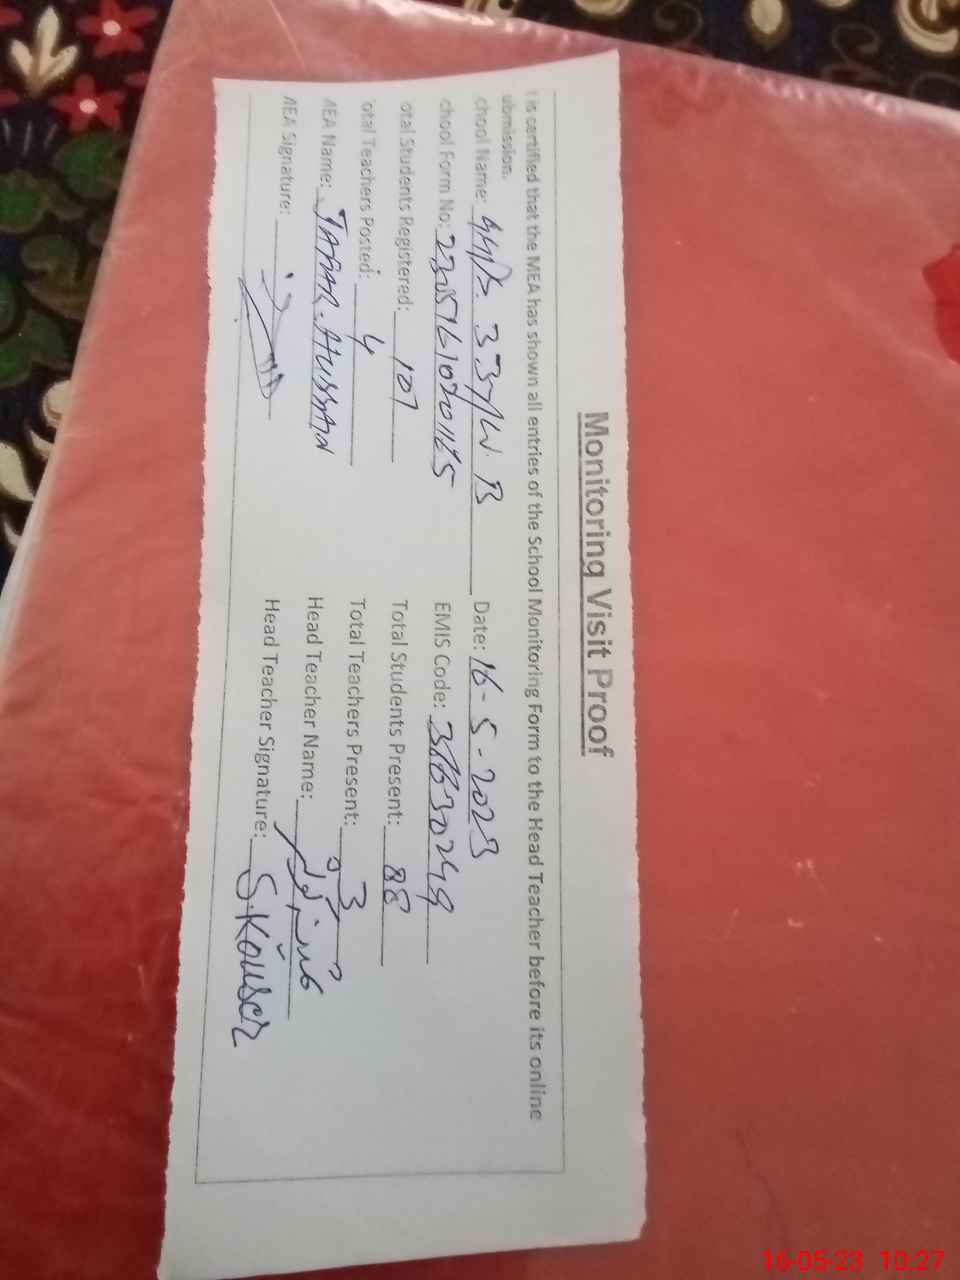 Monitoring Visit Proof
t is certified that the MEA has shown all entries of the School Monitoring Form to the Head Teacher before its online
ubmission.
chool Name: 337/W.B Date: 16-5-2023
chool Form No: EMIS Code:
otal Students Registered: 107 Total Students Present: 88
otal Teachers Posted: 4 Total Teachers Present: 3
MEA Name: JAFAR HUSSAIN Head Teacher Name:
MEA Signature: Head Teacher Signature: S.Kouser
16-05-23 10:27